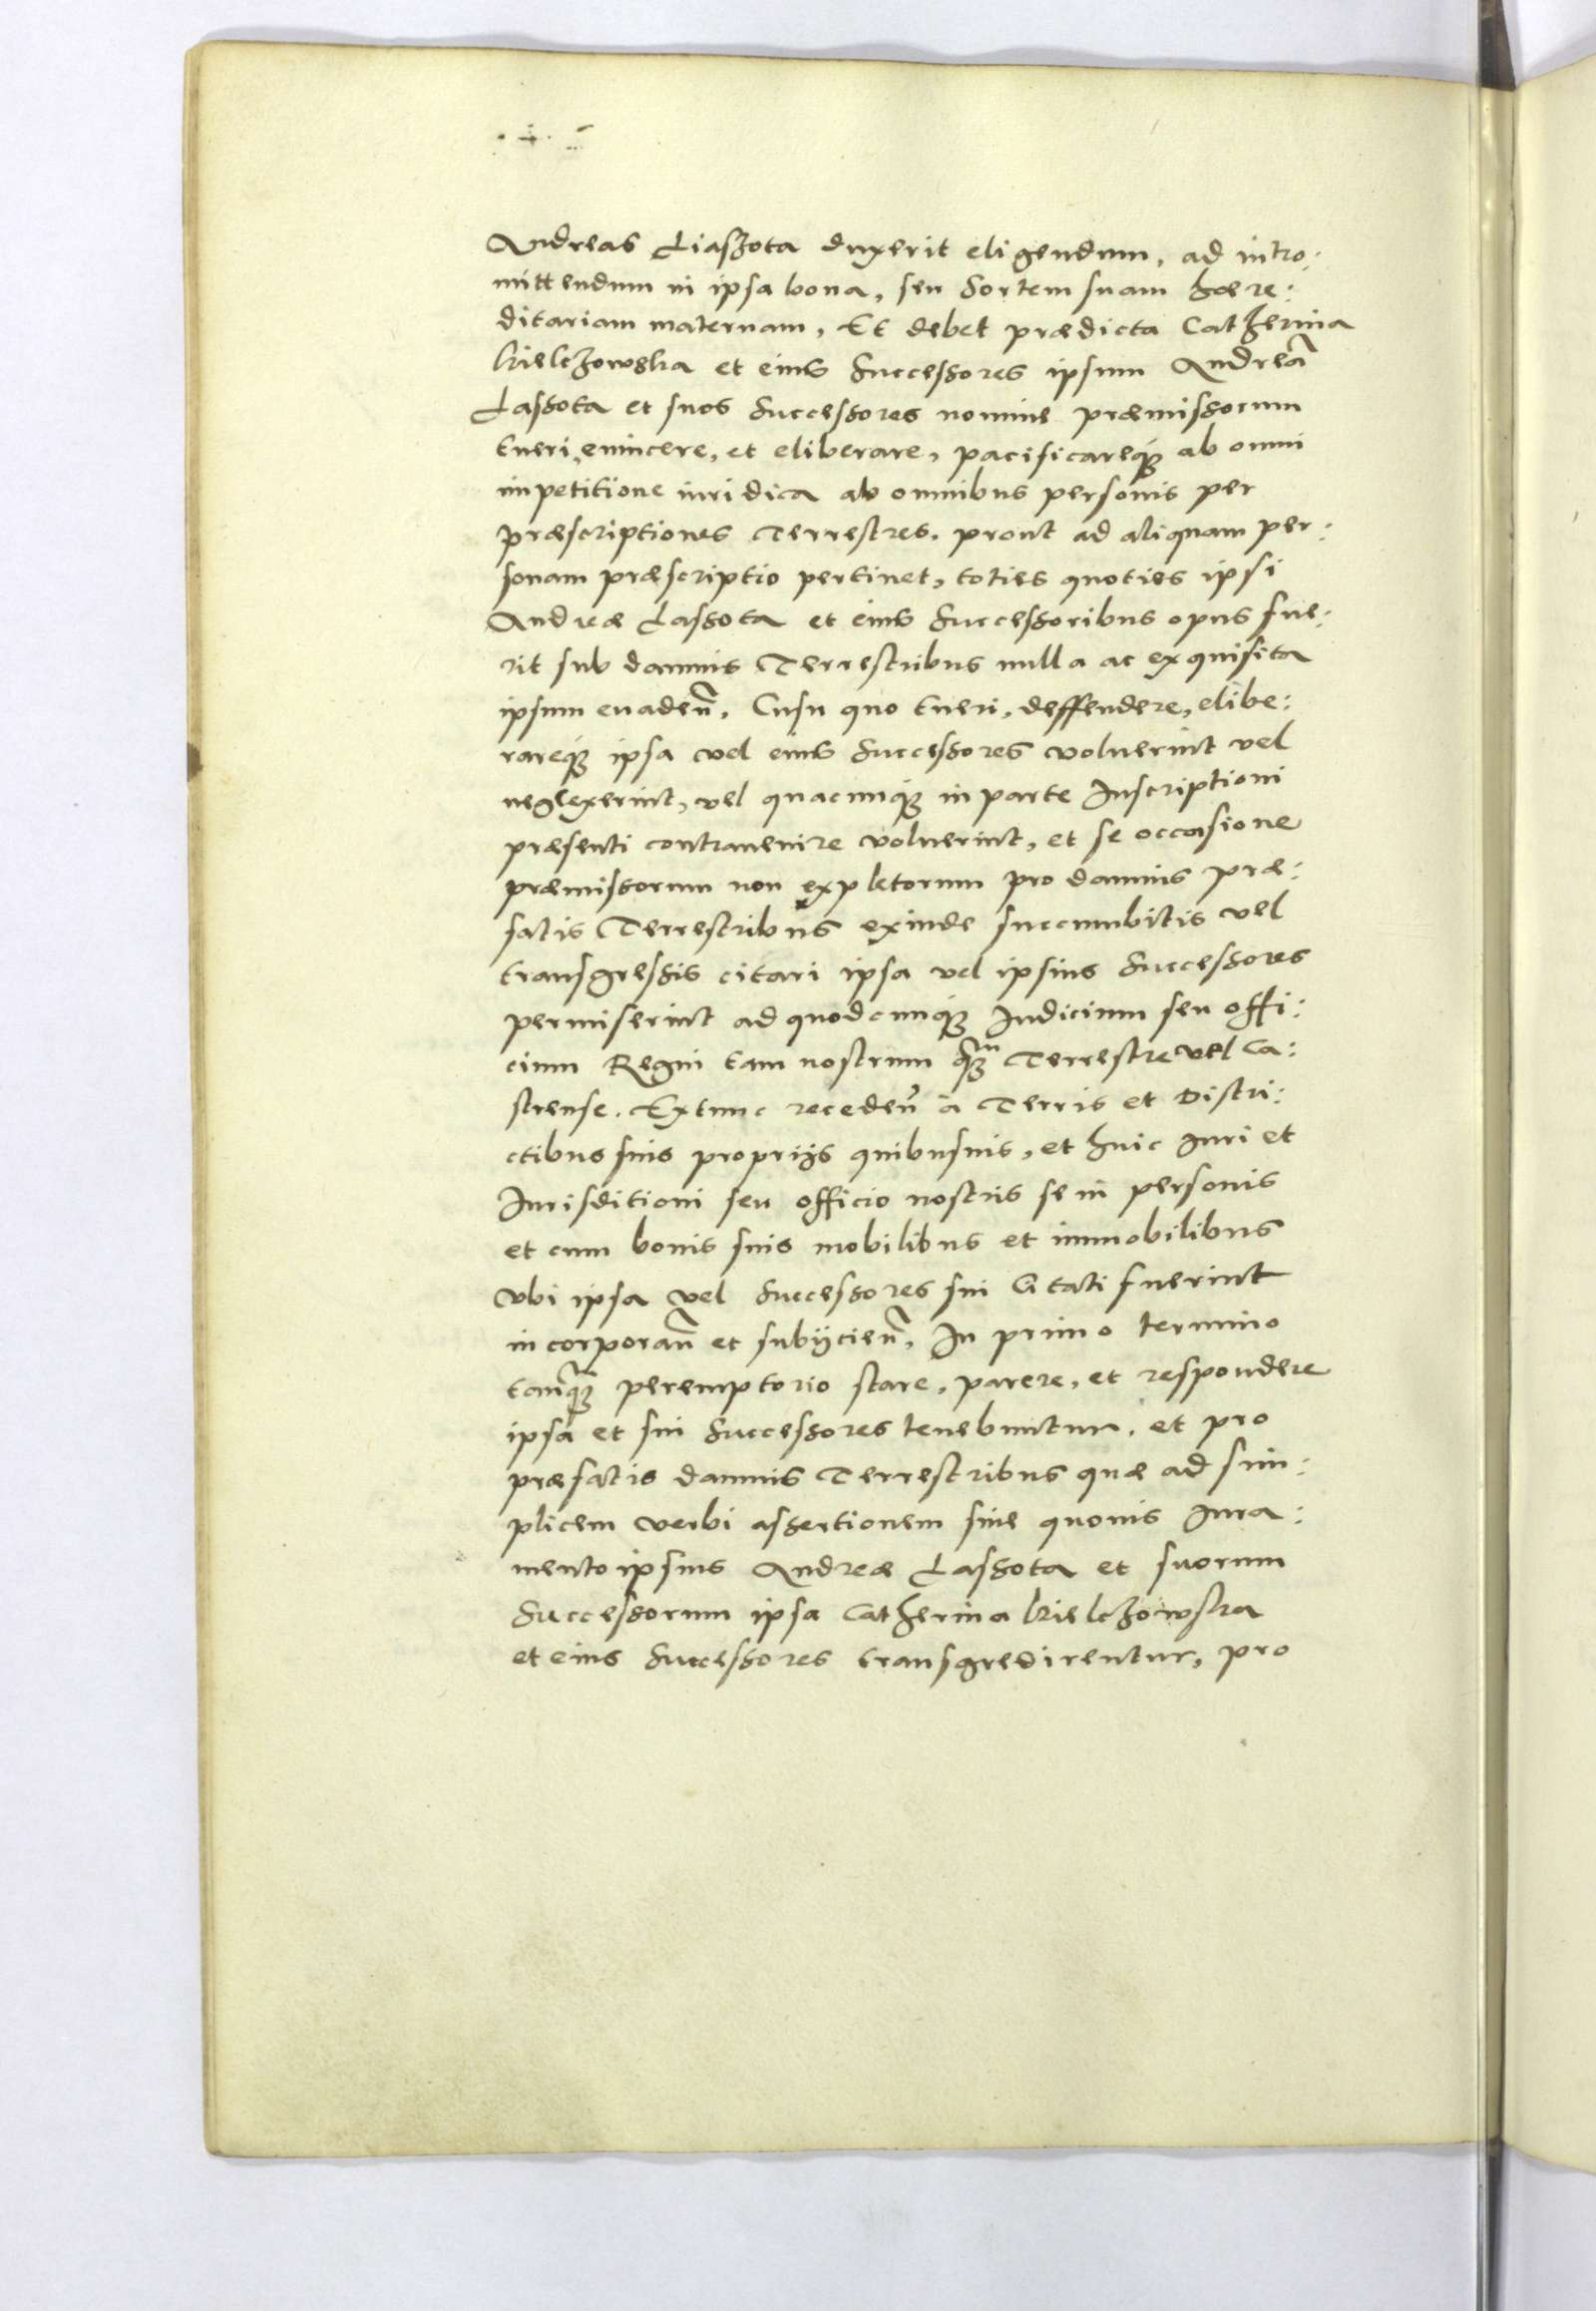 Andreas Liaszota duxerit eligendum, ad intro:
mittendum in ipsa bona, seu Sortem suam haere:
ditariam maternam, Et debet praedicta Catherina
kielczowska et eius Successores ipsum Andreã
Lassota et suos Successores nomine praemissorum
tueri, euincere, et eliberare, pacificareq3 ab omni
impetitione iuridica ab omnibus personis per
praescriptiones Terrestres. prout ad aliquam per:
sonam praescriptio pertinet, toties quoties ipsi
Andreae Lassota et eius Successoribus opus fue:
rit sub damnis Terrestribus nulla ac exquisita
ipsum euadeñ. Cusu quo tueri, deffendere, elibe:
rareq3 ipsa vel eius Successores voluerint vel
neglexerint, vel quacunq3 in parte Inscriptioni
praesenti contrauenire voluerint, et se occasione
praemissorum non expletorum pro damnis prae:
fatis Terrestribus exinde succumbitis vel
transgressis citari ipsa vel ipsius Successores
permiserint ad quodcunq3 Iudicium seu offi:
cium Regni tam nostrum q̃3 Terrestre vel Ca:
strense. Extunc recedeñ à Terris et Distri:
ctibus suis proprijs quibusuis, et huic Iuri et
Iurisditioni seu officio nostris se in personis
et cum bonis suis mobilibus et immobilibus
vbi ipsa vel Successores sui Citati fuerint
incorporañ et subijcieñ, In primo termino
tanq̃3 peremptorio stare, parere, et respondere
ipsa et sui Successores tenebuntur. et pro
praefatis damnis Terrestribus quae ad sim:
plicem verbi assertionem sine quouis Iura:
mento ipsius Andreae Lassota et suorum
Successorum ipsa Catherina kielczowska
et eius Successores transgredirentur, pro